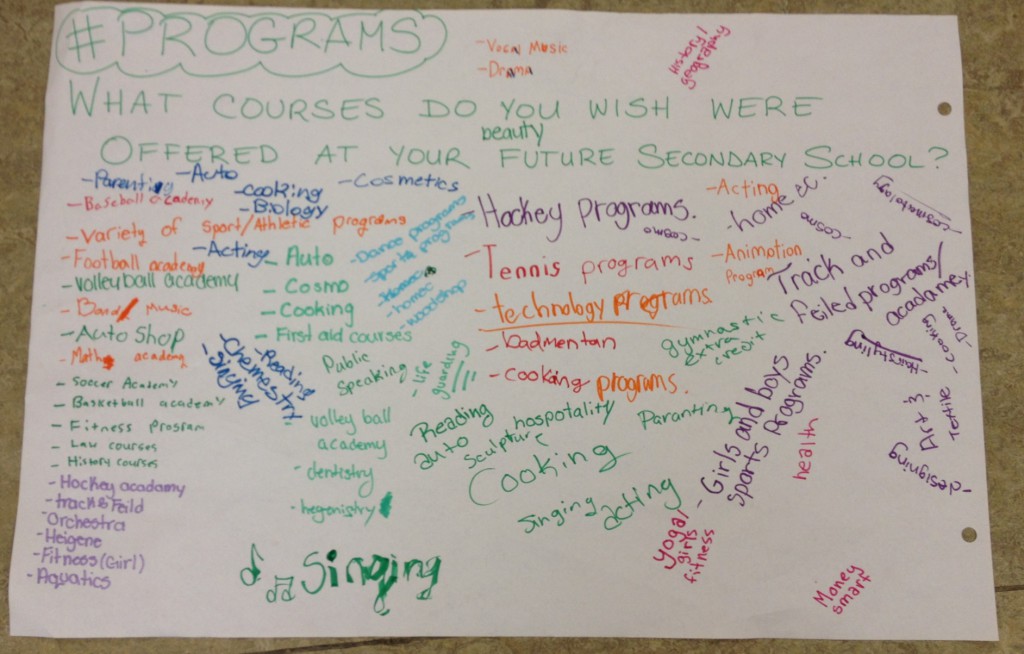 #PROGRAMS
- Vocal Music
- Drama
History/
geography
WHAT COURSES DO YOU WISH WERE
beauty
OFFERED AT YOUR FUTURE SECONDARY SCHOOL?
- Parenting
- Auto
- cooking
- Biology
- Cosmetics
- Baseball academy
- Variety of Sport/Athletic programs
- Acting
- Football academy
- Volleyball academy
- Band/ music
- Auto Shop
- Math academy
- Soccer Academy
- Basketball academy
- Fitness Program
- Law courses
- History courses
- Hockey acadamy
- track & Feild
- Orchestra
- Heigene
- Fitness (Girl)
- Aquatics
- Auto
- Cosmo
- Cooking
- First aid courses
- Reading
- Chemestry
- Singing
Public
speaking
- life
guarding
volley ball
academy
- dentistry
- hegenistry
Singing
- Dance programs
- Sports programs
- homec
- woodshop
Hockey Programs.
- cosmo
- Tennis programs
- technology programs
- badmentan
- Cooking programs.
- Acting
- home ec.
- cosmo
- cosmatology
- Animotion
Program
Track and
Feiled programs/
acadamey
gymnastic
extra
credit
- Hairstyling
- Drama
- Cooking
Art &
Textile
- designing
Reading
auto
Sculpture
hospotality
Paranting
Cooking
singing
acting
- Girls and boys
sports Programs.
health
yoga/
girls
fitness
Money
smart